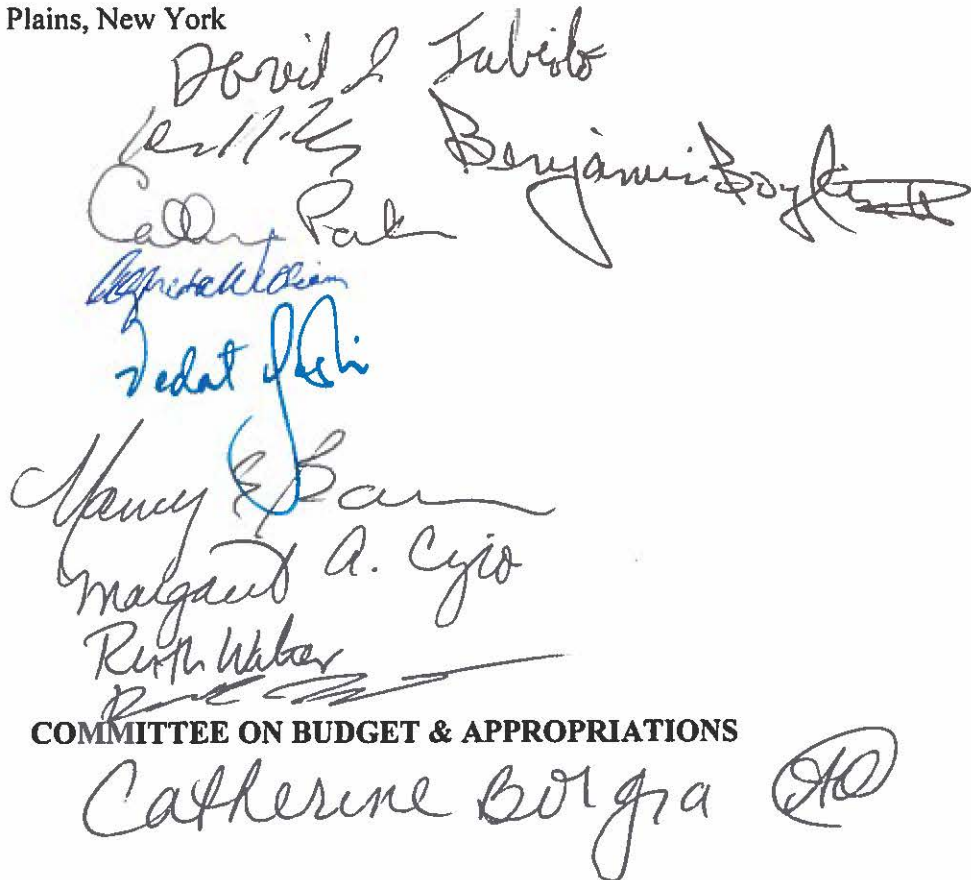 Plains, New York
David J. Tubiolo
Benjamin Boykin II
Catherine Parker
Vedat Gashi
Nancy E. Barr
Margaret A. Cuzio
Ruth Walter
COMMITTEE ON BUDGET & APPROPRIATIONS
Catherine Borgia